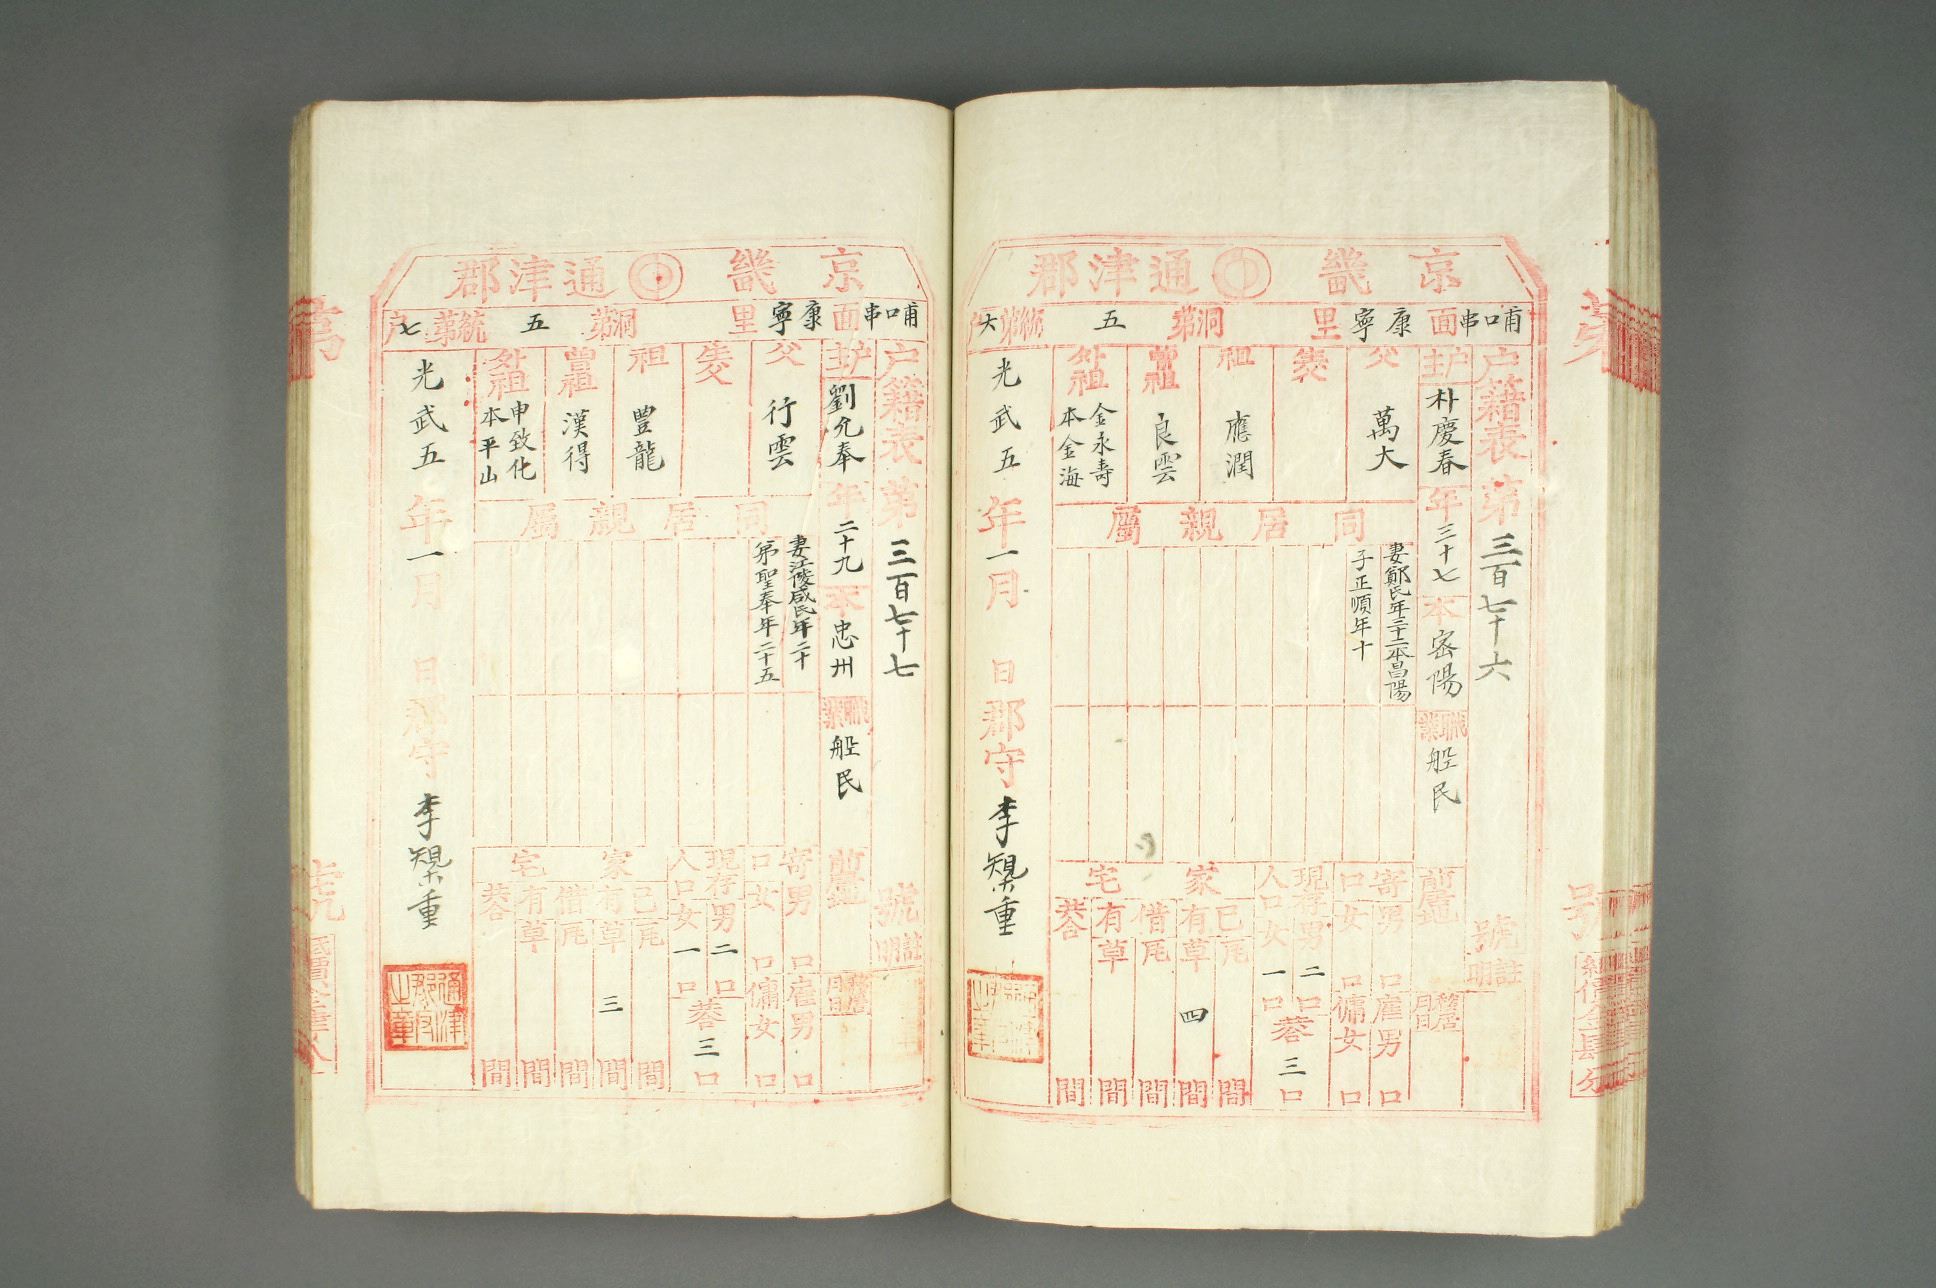 京畿通津郡
哺口串面康寧里洞第五統第六戶
戶籍表第三百七十六號
戶主朴慶春年三十七本密陽職業船民
父萬大
生父
祖應潤
曾祖良雲
外祖金永壽本金海
同居親屬
妻鄭氏年三十二本昌陽
子正順年十
寄口男口女口
雇男口傭女口
現存人口男二口女一口
共三口
家宅
己有瓦間
草四間
借有瓦間
草間
共間
光武五年一月日郡守李槼重
京畿通津郡
哺口串面康寧里洞第五統第七戶
戶籍表第三百七十七號
戶主劉允奉年二十九本忠州職業船民
父行雲
生父
祖豊龍
曾祖漢得
外祖申致化本平山
同居親屬
妻江陵咸氏年二十
弟聖奉年二十五
寄口男口女口
雇男口傭女口
現存人口男二口女一口
共三口
家宅
己有瓦間
草三間
借有瓦間
草間
共間
光武五年一月日郡守李槼重
通津郡守之章